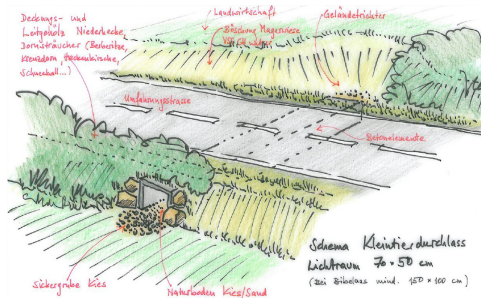 Deckungs- und
Leitgehölz Niederhecke
Dornsträucher (Berberitze,
Kreuzdorn, Heckenkirsche,
Schneeball...)
Landwirtschaft
Böschung Magerwiese
Geländetrichter
Umfahrungsstrasse
Betonelemente
Sickergrube Kies
Naturboden Kies/Sand
Schema Kleintierdurchlass
Lichtraum 70 × 50 cm
(Bei Biberpass mind. 150 × 100 cm)